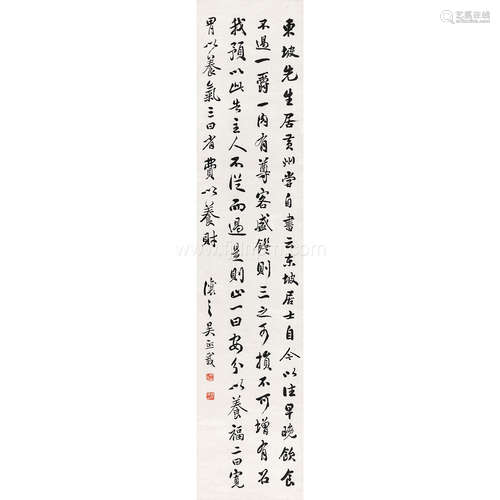 東坡先生居黄州嘗自書云东坡居士自今以往早晚飲食
不過一爵一肉有尊客盛饌則三之可損不可增有召
我預以此告主人不從而過是則止一曰安分以養福二曰寬
胃以養氣三曰省費以養財
讓之吴熙載